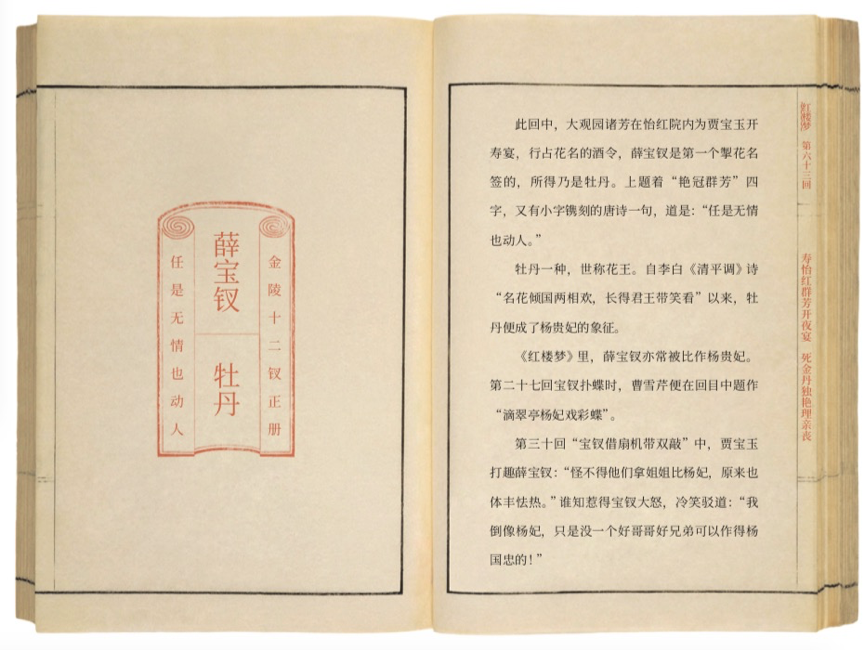 薛宝钗
牡丹
金陵十二钗正册
任是无情也动人
此回中，大观园诸芳在怡红院内为贾宝玉开
寿宴，行占花名的酒令，薛宝钗是第一个掣花名
签的，所得乃是牡丹。上题着“艳冠群芳”四
字，又有小字镌刻的唐诗一句，道是：“任是无情
也动人。”
牡丹一种，世称花王。自李白《清平调》诗
“名花倾国两相欢，长得君王带笑看”以来，牡
丹便成了杨贵妃的象征。
《红楼梦》里，薛宝钗亦常被比作杨贵妃。
第二十七回宝钗扑蝶时，曹雪芹便在回目中题作
“滴翠亭杨妃戏彩蝶”。
第三十回“宝钗借扇机带双敲”中，贾宝玉
打趣薛宝钗：“怪不得他们拿姐姐比杨妃，原来也
体丰怯热。”谁知惹得宝钗大怒，冷笑驳道：“我
倒像杨妃，只是没一个好哥哥好兄弟可以作得杨
国忠的！”
红楼梦 第六十三回
寿怡红群芳开夜宴 死金丹独艳理亲丧